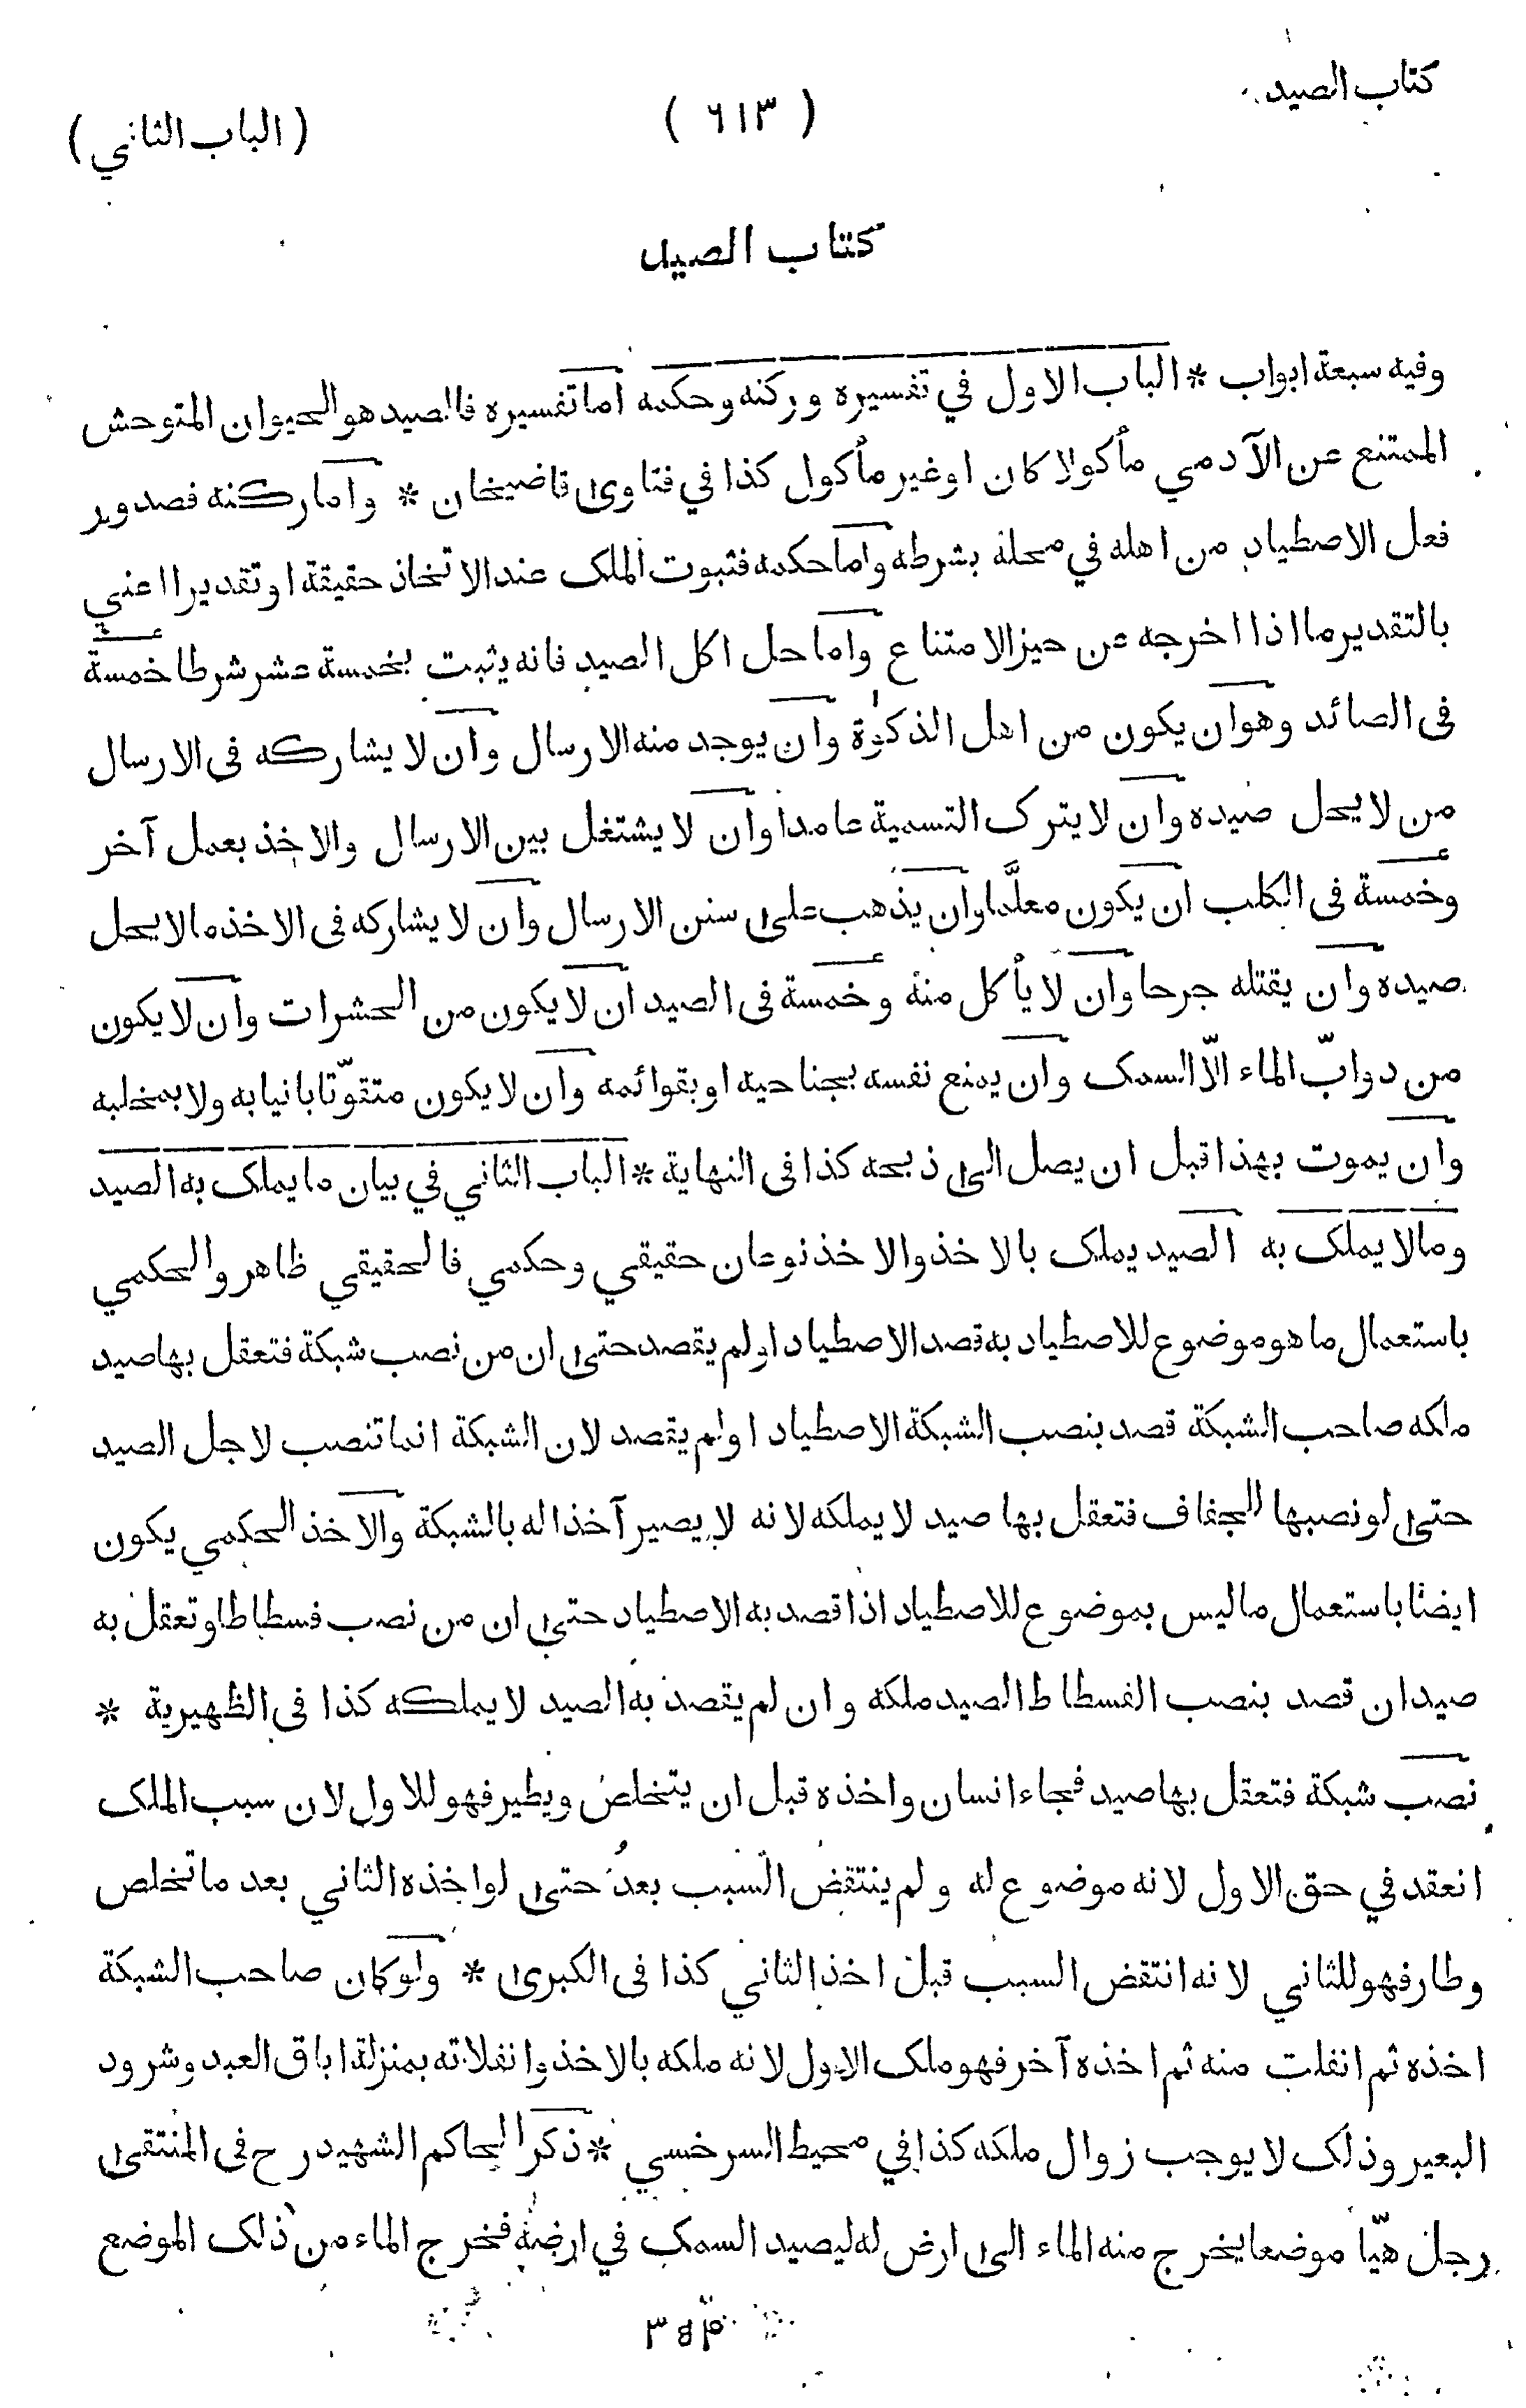 كتاب الصيد
( ٦١٣ )
( الباب الثاني )
كتاب الصيد
وفيه سبعة ابواب * الباب الاول في تفسيره وركنه وحكمه اما تفسيره فالصيد هو الحيوان المتوحش
الممتنع عن الآدمي مأكولا كان او غير مأكول كذا في فتاوى قاضيخان * واما ركنه فصدور
فعل الاصطياد من اهله في محله بشرطه واما حكمه فثبوت الملك عند الاتخاذ حقيقة او تقديرا اعني
بالتقدير ما اذا اخرجه عن حيز الامتناع واما حل اكل الصيد فانه يثبت بخمسة عشر شرطا خمسة
فى الصائد وهو ان يكون من اهل الذكوة وان يوجد منه الارسال وان لا يشاركه فى الارسال
من لا يحل صيده وان لا يترك التسمية عامدا وان لا يشتغل بين الارسال والاخذ بعمل آخر
وخمسة فى الكلب ان يكون معلَّما وان يذهب على سنن الارسال وان لا يشاركه فى الاخذ ما لا يحل
صيده وان يقتله جرحا وان لا يأكل منه وخمسة فى الصيد ان لا يكون من الحشرات وان لا يكون
من دوابّ الماء الّا السمك وان يمنع نفسه بجناحيه او بقوائمه وان لا يكون متقوّتا بانيابه ولا بمخلبه
وان يموت بهذا قبل ان يصل الى ذبحه كذا فى النهاية * الباب الثاني في بيان ما يملك به الصيد
وما لا يملك به الصيد يملك بالاخذ والاخذ نوعان حقيقي وحكمي فالحقيقي ظاهر والحكمي
باستعمال ما هو موضوع للاصطياد به قصد الاصطياد او لم يقصد حتى ان من نصب شبكة فتعقل بها صيد
ملكه صاحب الشبكة قصد بنصب الشبكة الاصطياد او لم يقصد لان الشبكة انما تنصب لاجل الصيد
حتى لو نصبها للجفاف فتعقل بها صيد لا يملكه لانه لا يصير آخذا له بالشبكة والاخذ الحكمي يكون
ايضا باستعمال ما ليس بموضوع للاصطياد اذا قصد به الاصطياد حتى ان من نصب فسطاطا وتعقل به
صيد ان قصد بنصب الفسطاط الصيد ملكه وان لم يقصد به الصيد لا يملكه كذا فى الظهيرية *
نصب شبكة فتعقل بها صيد فجاء انسان واخذه قبل ان يتخلص ويطير فهو للاول لان سبب الملك
انعقد في حق الاول لانه موضوع له ولم ينتقض السبب بعدُ حتى لو اخذه الثاني بعد ما تخلص
وطار فهو للثاني لانه انتقض السبب قبل اخذ الثاني كذا فى الكبرى * ولو كان صاحب الشبكة
اخذه ثم انفلت منه ثم اخذه آخر فهو ملك الاول لانه ملكه بالاخذ وانفلاته بمنزلة اباق العبد وشرود
البعير وذلك لا يوجب زوال ملكه كذا في محيط السرخسي * ذكر الحاكم الشهيد رح فى المنتقى
رجل هيّأ موضعا يخرج منه الماء الى ارض له ليصيد السمك في ارضه فخرج الماء من ذلك الموضع